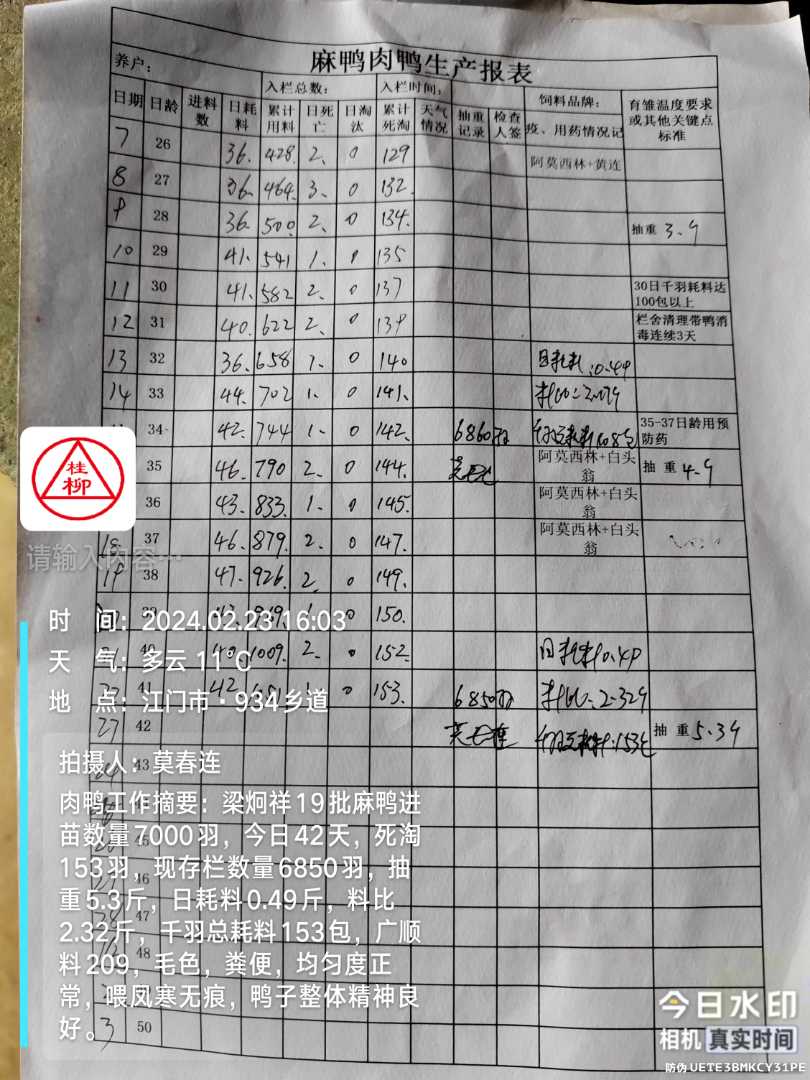 麻鸭肉鸭生产报表
养户： 入栏总数： 入栏时间： 饲料品牌： 育雏温度要求或其他关键点标准
日期 日龄 进料数 日耗料 累计用料 日死亡 日淘汰 累计死淘 天气情况 抽重记录 检查人签 疫、用药情况记
7 26 36. 428. 2. 0 129 阿莫西林+黄连
8 27 36. 464. 3. 0 132.
9 28 36. 500. 2. 0 134. 抽重 3.9
10 29 41. 541 1. 0 135
11 30 41. 582 2. 0 137 30日千羽耗料达100包以上
12 31 40. 622 2. 0 139 栏舍清理带鸭消毒连续3天
13 32 36. 658 1. 0 140 日耗料:0.49
14 33 44. 702 1. 0 141.
34 42. 744 1. 0 142. 6860羽 35-37日龄用预防药
35 46. 790 2. 0 144. 阿莫西林+白头翁 抽重 4.9
36 43. 833. 1. 0 145. 阿莫西林+白头翁
18 37 46. 879. 2. 0 147. 阿莫西林+白头翁
19 38 47. 926. 2. 0 149.
39 1. 0 150.
40 1009. 2. 0 152. 日耗料0.49
41 42. 0 153. 6850羽 2.329
42 抽重 5.39
43
45
46
47
48
50
桂柳
请输入内容…
时 间：2024.02.23 16:03
天 气：多云 11℃
地 点：江门市·934乡道
拍摄人：莫春连
肉鸭工作摘要：梁炯祥19批麻鸭进
苗数量7000羽，今日42天，死淘
153羽，现存栏数量6850羽，抽
重5.3斤，日耗料0.49斤，料比
2.32斤，千羽总耗料153包，广顺
料209，毛色，粪便，均匀度正
常，喂凤寒无痕，鸭子整体精神良
好。
今日水印
相机 真实时间
防伪 UETE3BMKCY31PE